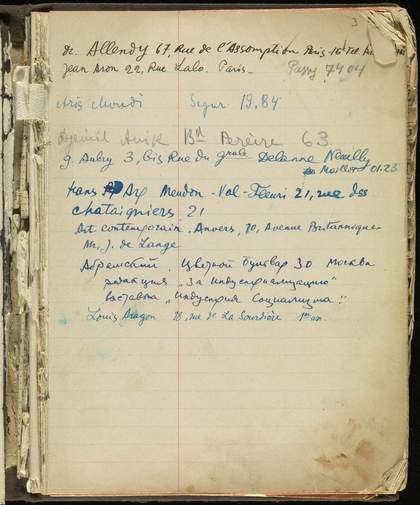 3
Dr. Allendy 67, Rue de l'Assomption Paris 16e Tel.
Jean Aron 22, Rue Lalo. Paris. Passy 7404
Segur 19.84
Bd Pereire 63
g. Aubry 3, bis Rue du Delanne Neuilly
Maillot 01.23
Hans Arp Meudon-Val-Fleuri 21, rue des
chataigniers. 21
Art contemporain. Anvers, 70, Avenue Britannique
Mr. J. de Lange
Абрамский. Цветной бульвар 30 Москва
редакция „За индустриализацию"
выставка „Индустрия Социализма":
Louis Aragon 18, rue de La Sourdière 1er arr.